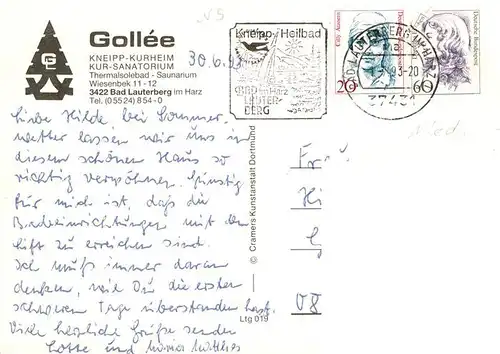 Gollée
G
KNEIPP-KURHEIM
KUR-SANATORIUM
Thermalsolebad - Saunarium
Wiesenbek 11 - 12
3422 Bad Lauterberg im Harz
Tel. (05524) 854-0
30.6.93
Kneipp-Heilbad
BAD im Harz
LAUTER-
BERG
BAD LAUTERBERG IM HARZ
93-20
37431
Deutsche Bundespost
20
60
Liebe Hilde bei Sommer-
wetter lassen wir uns in
diesem schönen Haus so
richtig verwöhnen. Günstig
für mich ist, daß die
Badeeinrichtungen mit dem
Lift zu erreichen sind.
Ich muß immer daran
denken, wie Du die ersten
schweren Tage überstanden hast.
Viele herzliche Grüße senden
Lotte und
© Cramers Kunstanstalt Dortmund
Ltg 019
Frau
Hi
08